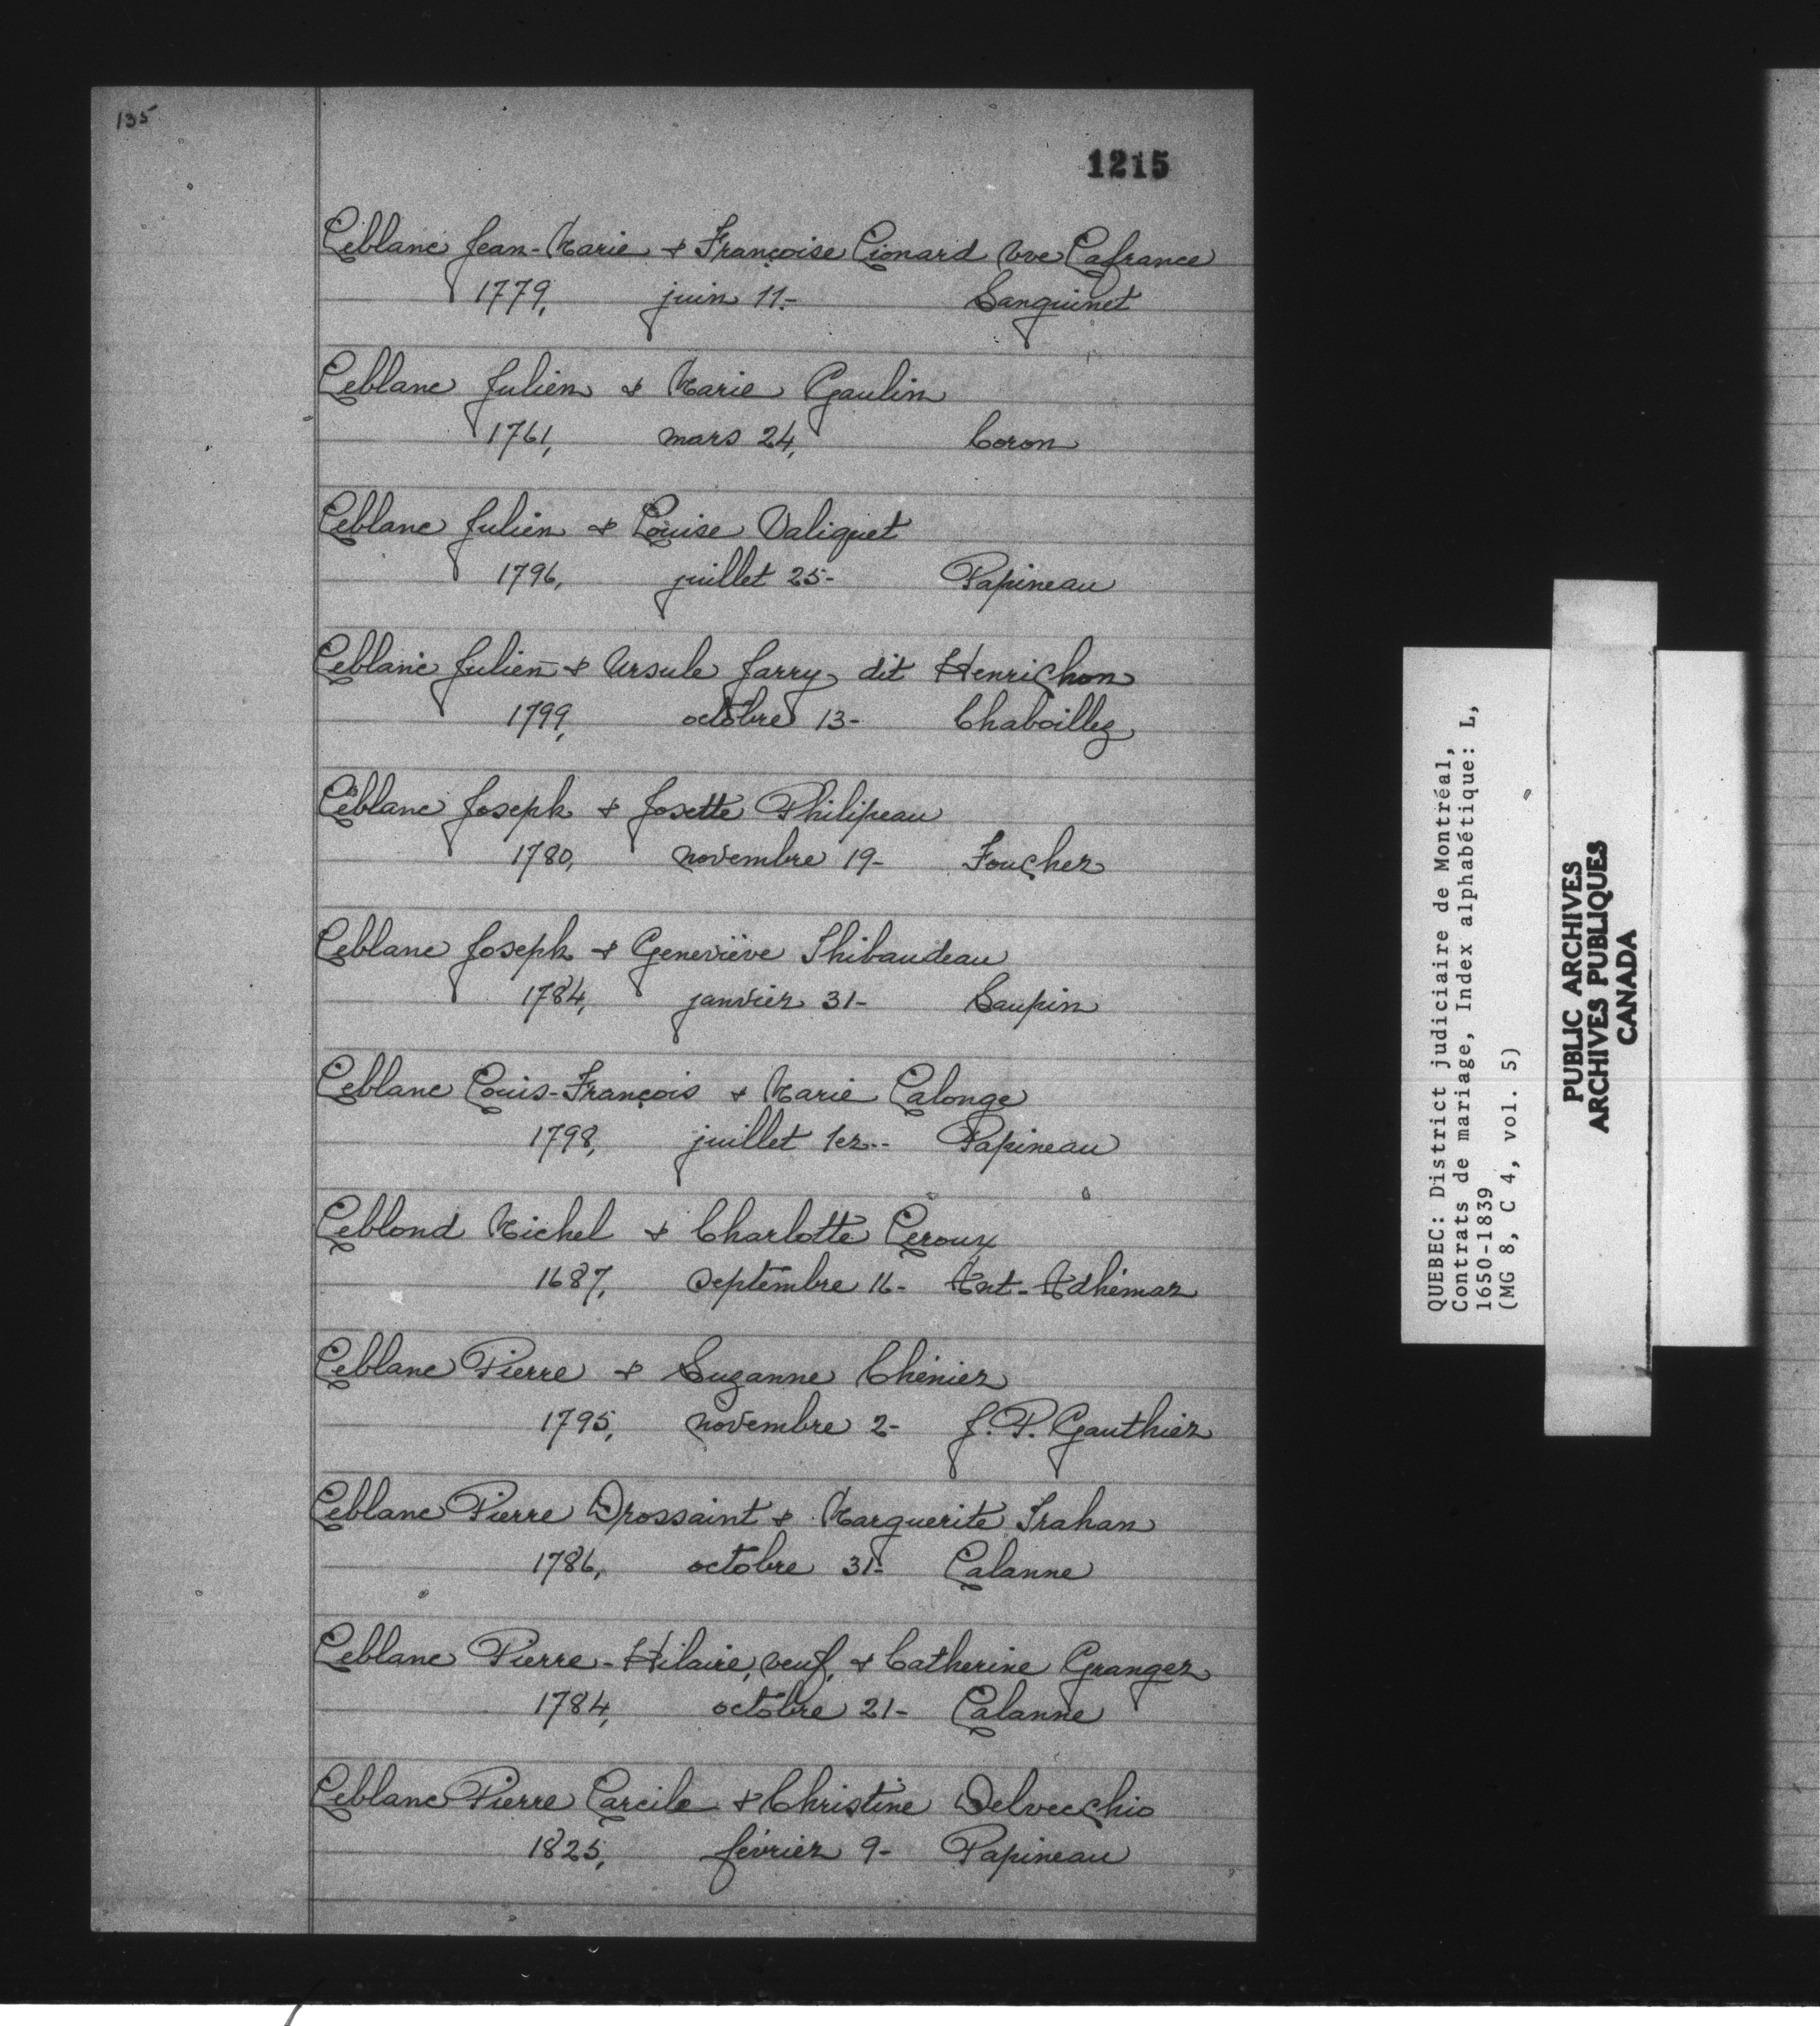 135
1215
Leblanc Jean-Marie & Françoise Lionard Vve Lafrance
1779, juin 11- Sanguinet
Leblanc Julien & Marie Gaulin
1761, mars 24, Coron
Leblanc Julien & Louise Valiquet
1796, juillet 25- Papineau
Leblanc Julien & Ursule Jarry dit Henrichon
1799, octobre 13- Chaboillez
Leblanc Joseph & Josette Philipeau
1780, novembre 19- Foucher
Leblanc Joseph & Geneviève Thibaudeau
1784, janvier 31- Saupin
Leblanc Louis-François & Marie Lalonge
1798, juillet 1er-- Papineau
Leblond Michel & Charlotte Leroux
1687, septembre 16- Ant-Adhémar
Leblanc Pierre & Suzanne Chénier
1795, novembre 2- J. P. Gauthier
Leblanc Pierre Drossaint & Marguerite Trahan
1786, octobre 31- Lalanne
Leblanc Pierre-Hilaire, veuf, & Catherine Granger
1784, octobre 21- Lalanne
Leblanc Pierre Larcile & Christine Delvecchio
1825, février 9- Papineau
QUEBEC: District judiciaire de Montréal,
Contrats de mariage, Index alphabétique: L,
1650-1839
(MG 8, C 4, vol. 5)
PUBLIC ARCHIVES
ARCHIVES PUBLIQUES
CANADA